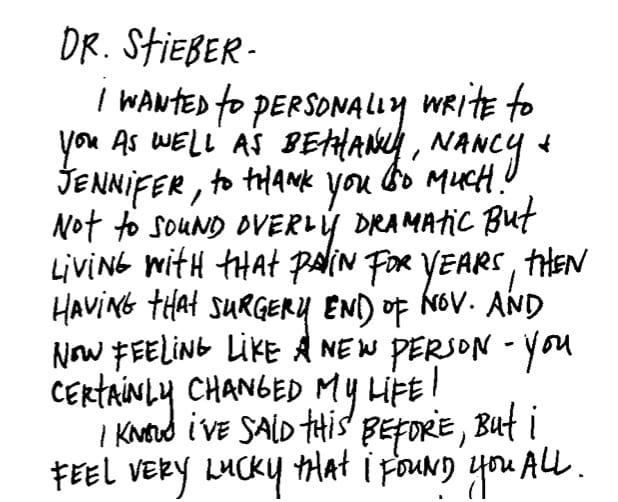 DR. STIEBER -
I WANTED to PERSONALLY WRITE to
you AS WELL AS BETHANY, NANCY +
JENNIFER, to THANK you SO MUCH!
NOT to SOUND OVERLY DRAMATIC BUT
LIVING WITH THAT PAIN FOR YEARS, THEN
HAVING THAT SURGERY END OF NOV. AND
NOW FEELING LIKE A NEW PERSON - you
CERTAINLY CHANGED MY LIFE!
I KNOW I'VE SAID THIS BEFORE, BUT i
FEEL VERY LUCKY THAT i FOUND you ALL.